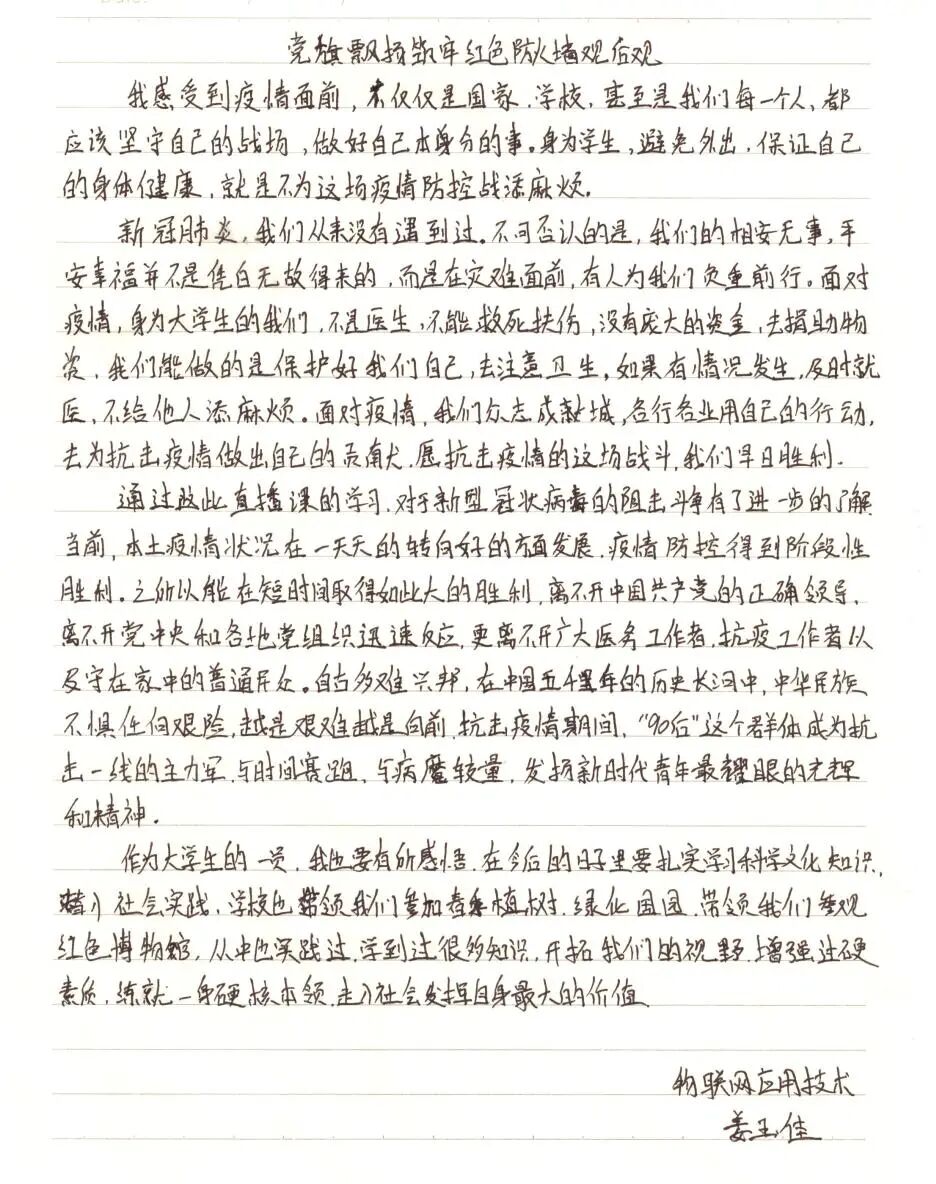 党旗飘扬筑牢红色防火墙观后观
我感受到疫情面前，不仅仅是国家、学校，甚至是我们每一个人，都
应该坚守自己的战场，做好自己本身分的事。身为学生，避免外出，保证自己
的身体健康，就是不为这场疫情防控战添麻烦。
新冠肺炎，我们从来没有遇到过。不可否认的是，我们的相安无事，平
安幸福并不是凭白无故得来的，而是在灾难面前，有人为我们负重前行。面对
疫情，身为大学生的我们，不是医生，不能救死扶伤，没有庞大的资金，去捐助物
资，我们能做的是保护好我们自己，去注意卫生，如果有情况发生，及时就
医，不给他人添麻烦。面对疫情，我们众志成城，各行各业用自己的行动，
去为抗击疫情做出自己的贡献，愿抗击疫情的这场战斗，我们早日胜利。
通过此直播课的学习，对于新型冠状病毒的阻击斗争有了进一步的了解
当前，本土疫情状况在一天天的转向好的方面发展，疫情防控得到阶段性
胜利。之所以能在短时间取得如此大的胜利，离不开中国共产党的正确领导，
离不开党中央和各地党组织迅速反应，更离不开广大医务工作者，抗疫工作者以
及守在家中的普通民众。自古多难兴邦，在中国五千年的历史长河中，中华民族
不惧任何艰险，越是艰难越是向前，抗击疫情期间，“90后”这个群体成为抗
击一线的主力军，与时间赛跑，与病魔较量，发扬新时代青年最耀眼的光辉
和精神。
作为大学生的一员，我也要有所感悟，在今后的日子里要扎实学习科学文化知识，
社会实践，学校也带领我们参加春季植树，绿化园园，带领我们参观
红色博物馆，从中也实践过，学到过很多知识，开拓我们的视野，增强过硬
素质，练就一身硬核本领，走入社会发挥自身最大的价值
物联网应用技术
姜玉佳